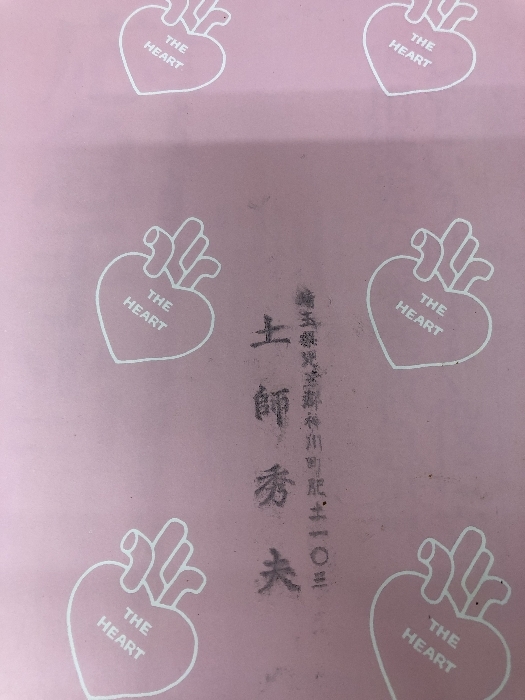 THE
HEART
THE
HEART
THE
HEART
THE
HEART
埼玉県児玉郡神川町肥土一〇三
土師秀夫
THE
HEART
THE
HEART